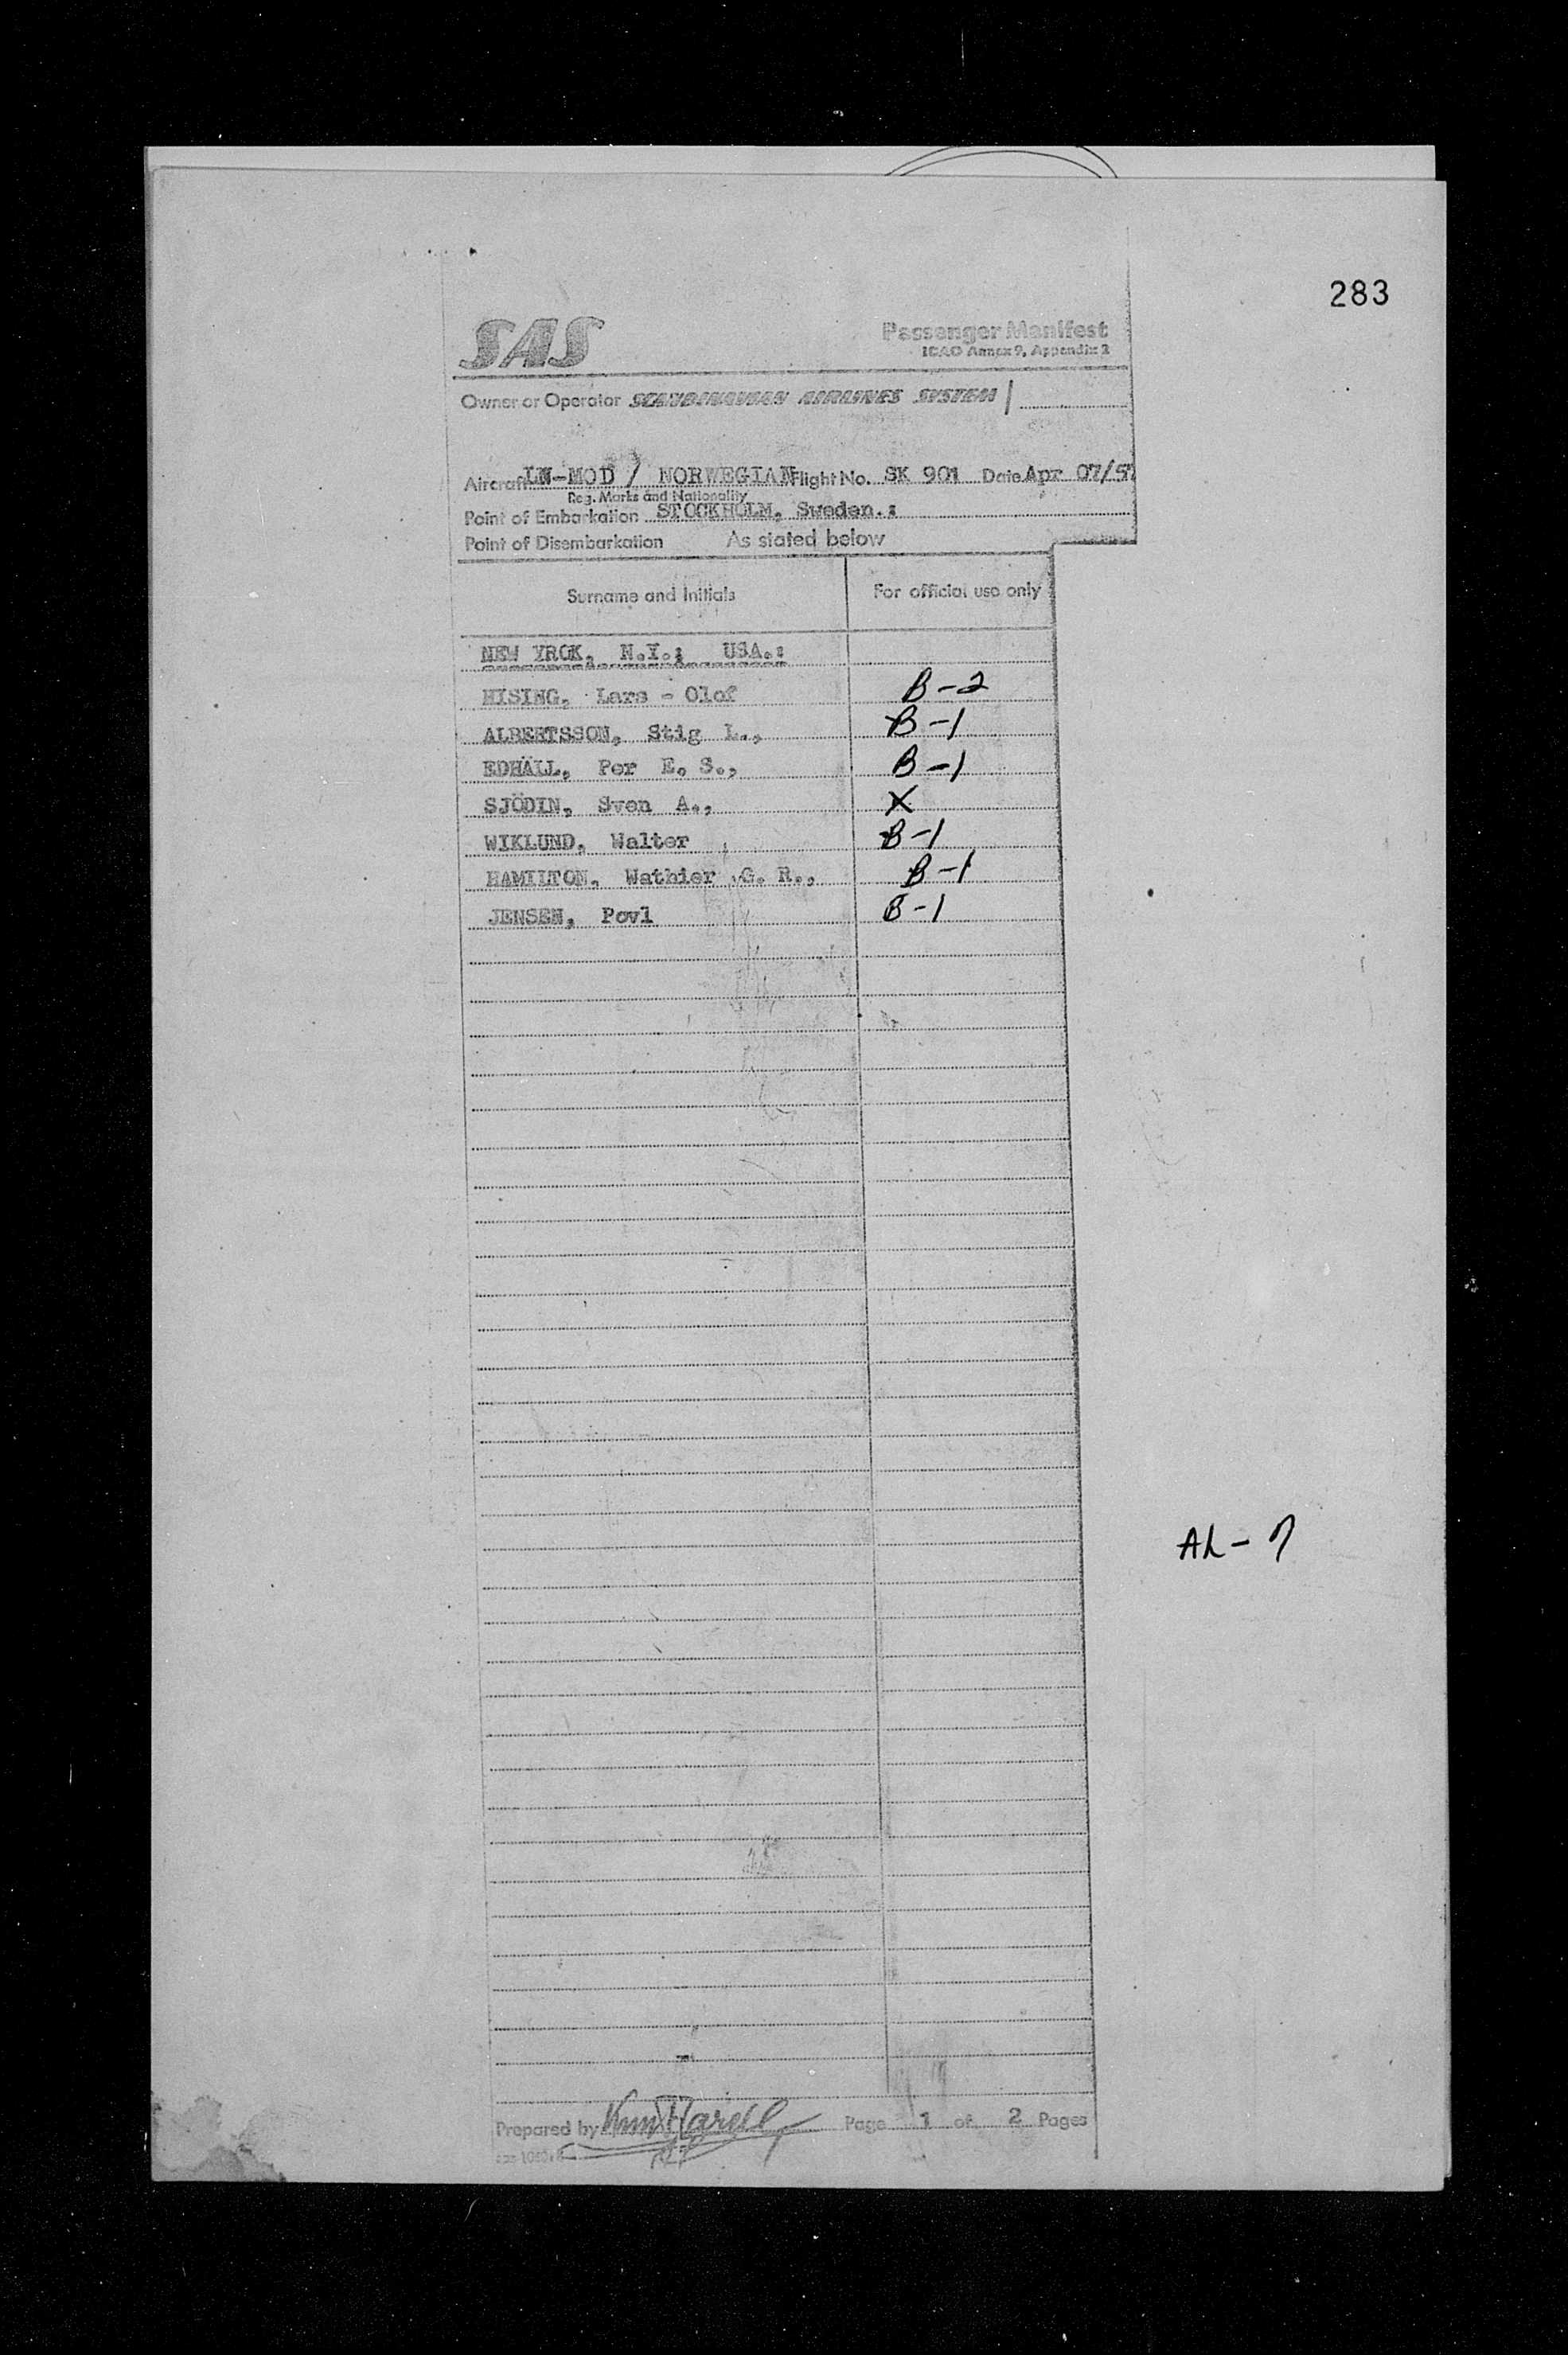 283
SAS
Passenger Manifest
ICAO Annex 9, Appendix 2
Owner or Operator SCANDINAVIAN AIRLINES SYSTEM
Aircraft LN-MOD / NORWEGIAN Flight No. SK 901 Date Apr 07/57
Reg. Marks and Nationality
Point of Embarkation STOCKHOLM, Sweden.:
Point of Disembarkation As stated below
Surname and Initials For official use only
NEW YROK, N.Y.; USA.:
HISING, Lars - Olof B-2
ALBERTSSON, Stig L., B-1
EDHÄLL, Per E. S., B-1
SJÖDIN, Sven A., X
WIKLUND, Walter B-1
HAMILTON, Wathier G. R., B-1
JENSEN, Povl B-1
AL-7
Prepared by Page 1 of 2 Pages